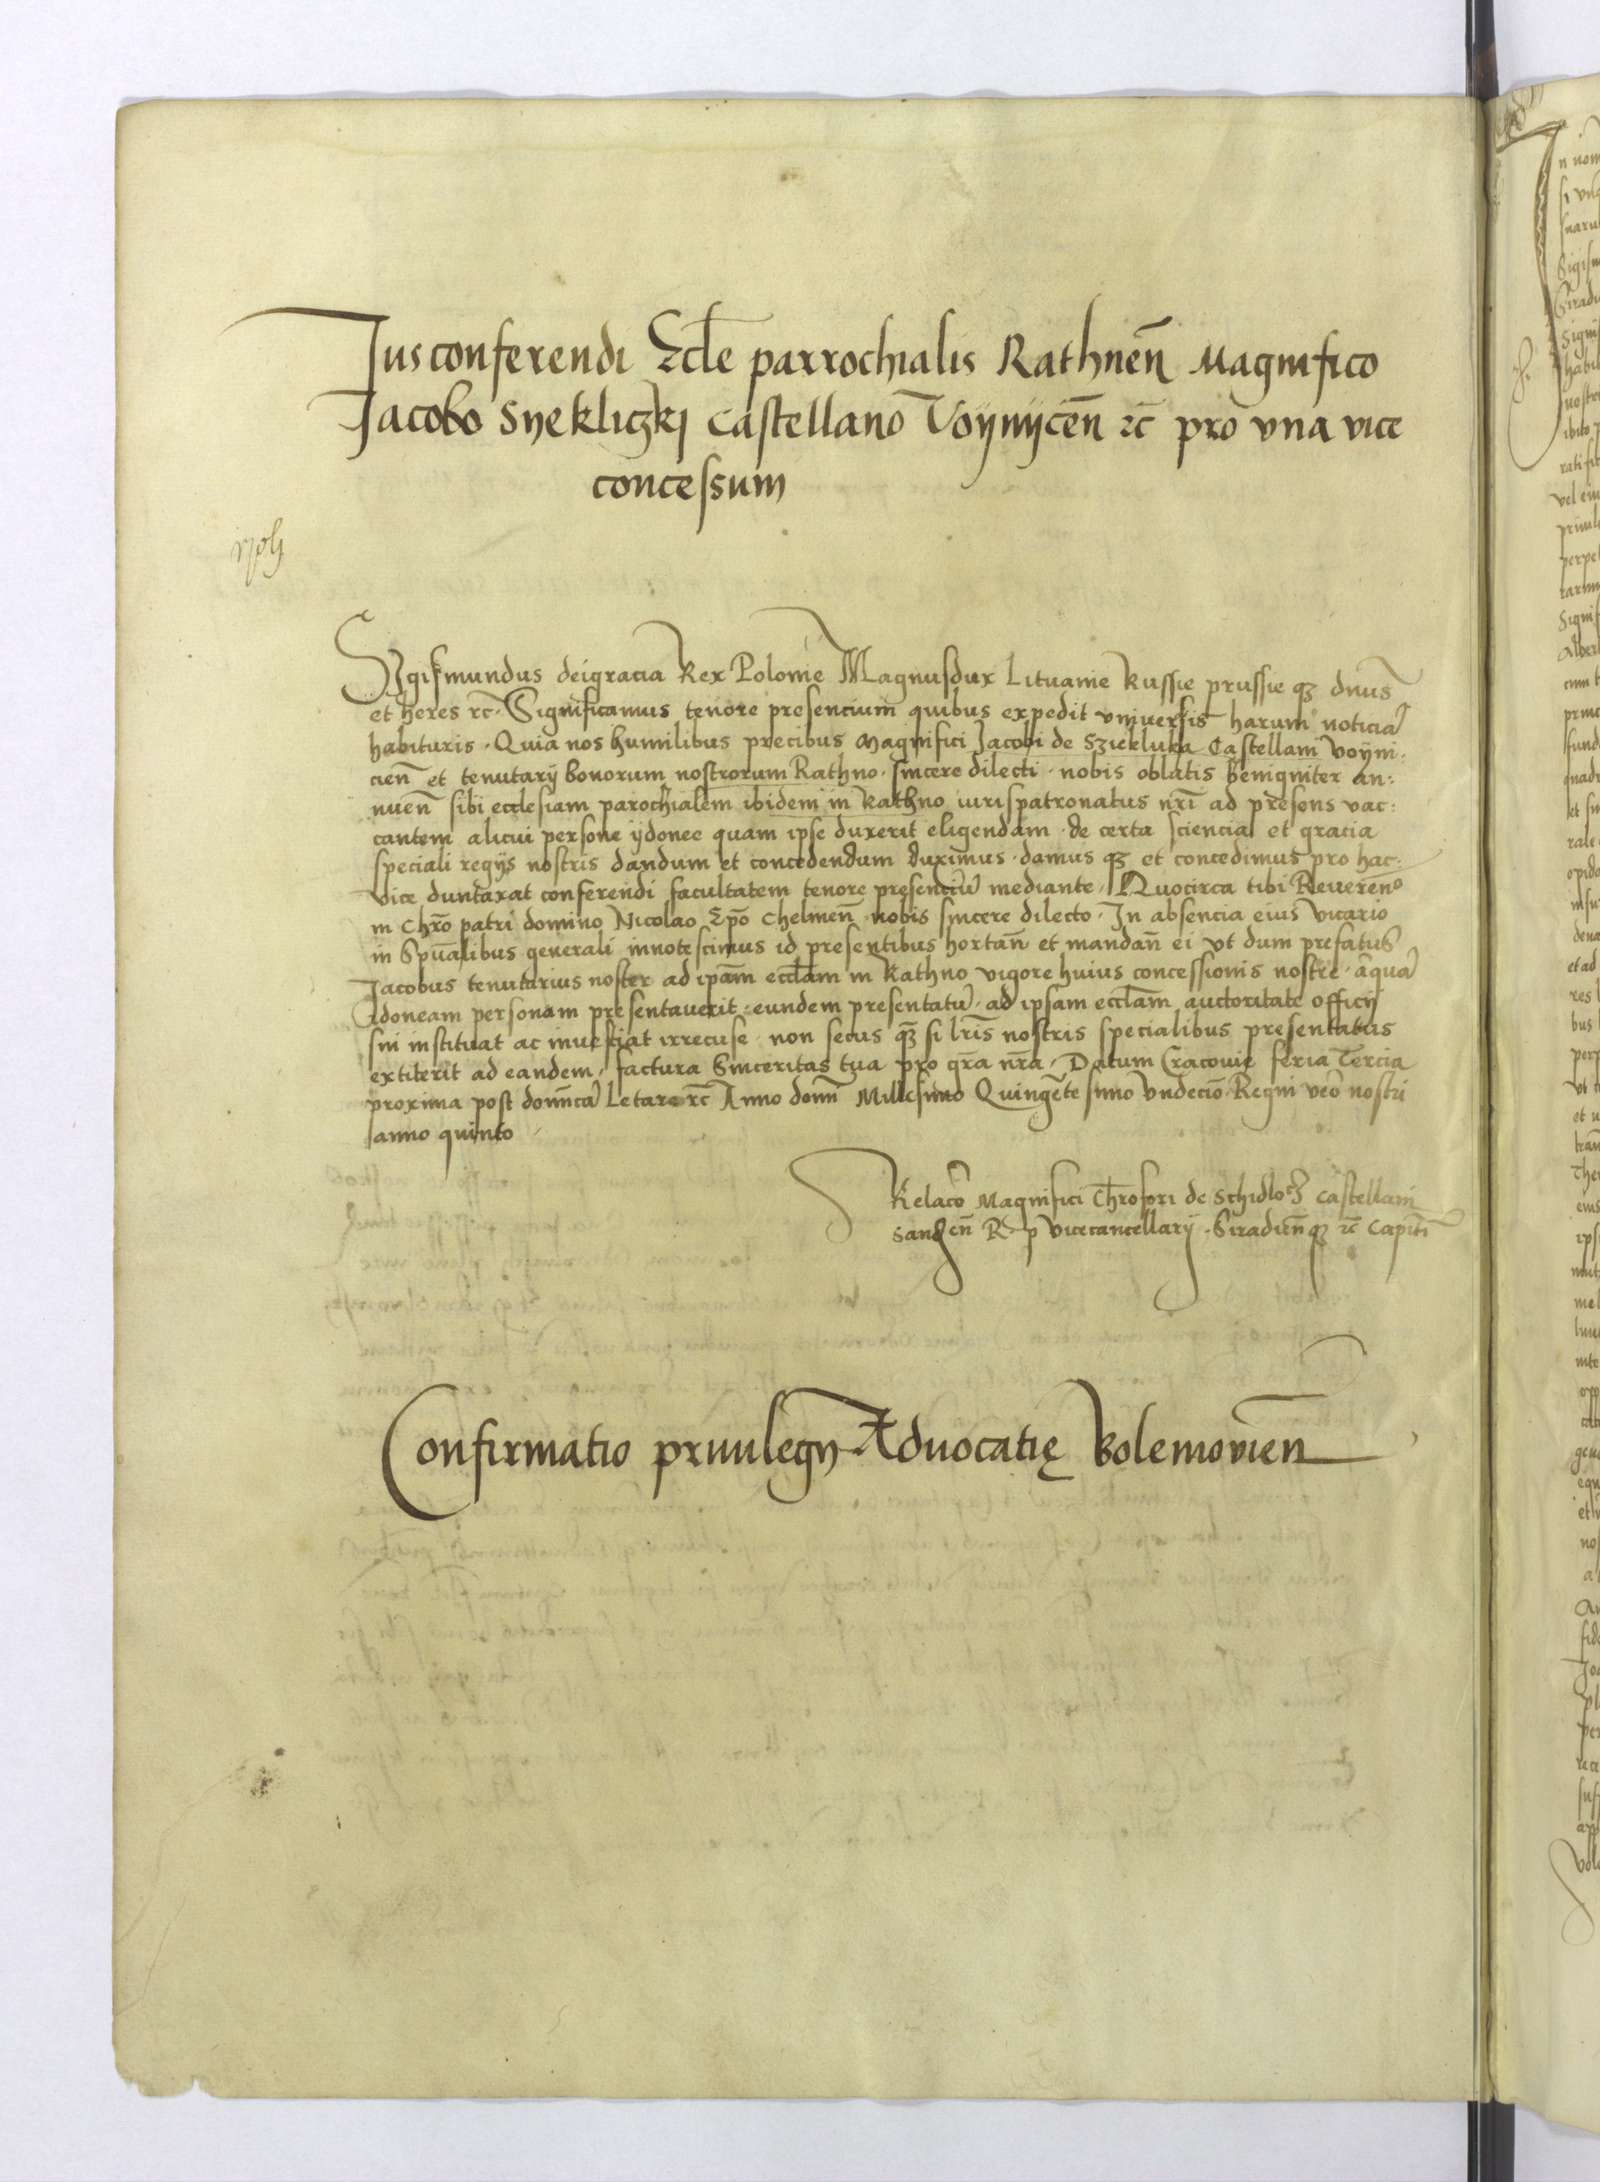 Jus conferendi Eccle parrochialis Rathneñ Magnifico
Jacobo Syekliczkj Castellano Voynyceñ ꝛc̄ pro vna vice
concessum
Sygismundus dei gracia Rex Polonie Magnus dux Lituanie Russie prussie qꝫ dn̄us
et heres ꝛc̄. Significamus tenore presencium quibus expedit vniuersis harum noticiā
habituris. Quia nos humilibus precibus Magnifici Jacobi de Sziekluka Castellani Voyni,
cien̄ et tenutarÿ bonorum nostrorum Rathno. sincere dilecti. nobis oblatis benigniter an:
nuen̄ sibi ecclesiam parochialem ibidem in Rathno iurispatronatus nr̄i ad presens vac:
cantem alicui persone ÿdonee quam ipse duxerit eligendam. de certa sciencia et gracia
speciali regÿs nostris dandum et concedendum duximus. damus qꝫ et concedimus pro hac:
vice duntaxat conferendi facultatem tenore presenciū mediante. Quocirca tibi Reueren⁰
in Chr̄o patri domino Nicolao Ep̄o Chelmen̄ nobis sincere dilecto. In absencia eius vicario
in Spūalibus generali innotescimus id presentibus hortan̄ et mandan̄ ei vt dum prefatus
Jacobus tenutarius noster ad ipām eccl̄am in Rathno vigore huius concessionis nostre. aliquā
Idoneam personam presentauerit. eundem presentatū. ad ipsam eccl̄am auctoritate officÿ
sui instituat ac inuestiat irrecuse. non secus qꝫ̄ si lr̄is nostris specialibus presentatus
extiterit ad eandem. factura Sinceritas tua pro gr̄a nr̄a. Datum Cracouie feria Tercia
proxima post domīnicā Letare ꝛc̄ Anno domī Millesimo Quingētesimo vndecīo Regni veō nostri
anno quinto
Relacō Magnifici Chr̄ofori de Schidlo Castellani
Sandꝰen̄ R. p. vicecancellarÿ. Siradien̄qꝫ ꝛc̄ Capitī
Confirmatio priuilegÿ Aduocatię Bolemouien